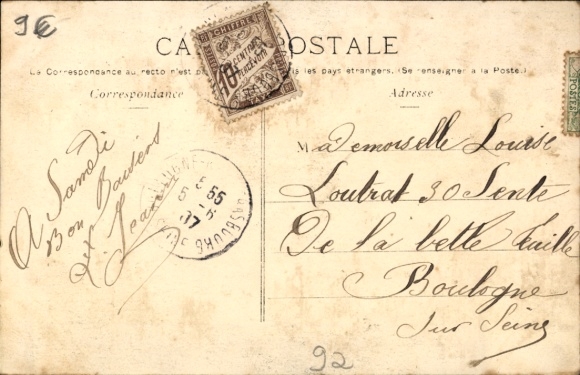 9€
CARTE POSTALE
La Correspondance au recto n'est pas tous les pays étrangers. (Se renseigner à la Poste.)
Correspondance
Adresse
CHIFFRE
10
CENTIMES
A PERCEVOIR
POSTES
A Samedi
Bon Baisers
Jeanne
5 55
5 - 6
07
STRASBOURG
Mademoiselle Louise
Loutrat 30 Sente
De la belle feuille
Boulogne
Sur Seine
92